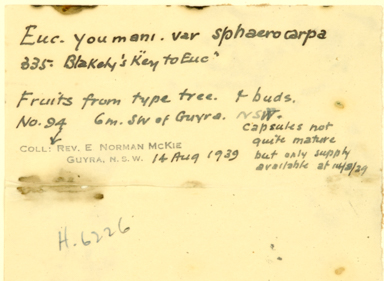 Euc. youmani. var sphaerocarpa
335. Blakely's "Key to Euc"
Fruits from type tree. & buds.
No. 94 6m. SW of Guyra. NSW.
COLL: REV. E NORMAN MCKIE
GUYRA, N.S.W. 14 Aug 1939
Capsules not
quite mature
but only supply
available at 14/8/39
H.6226